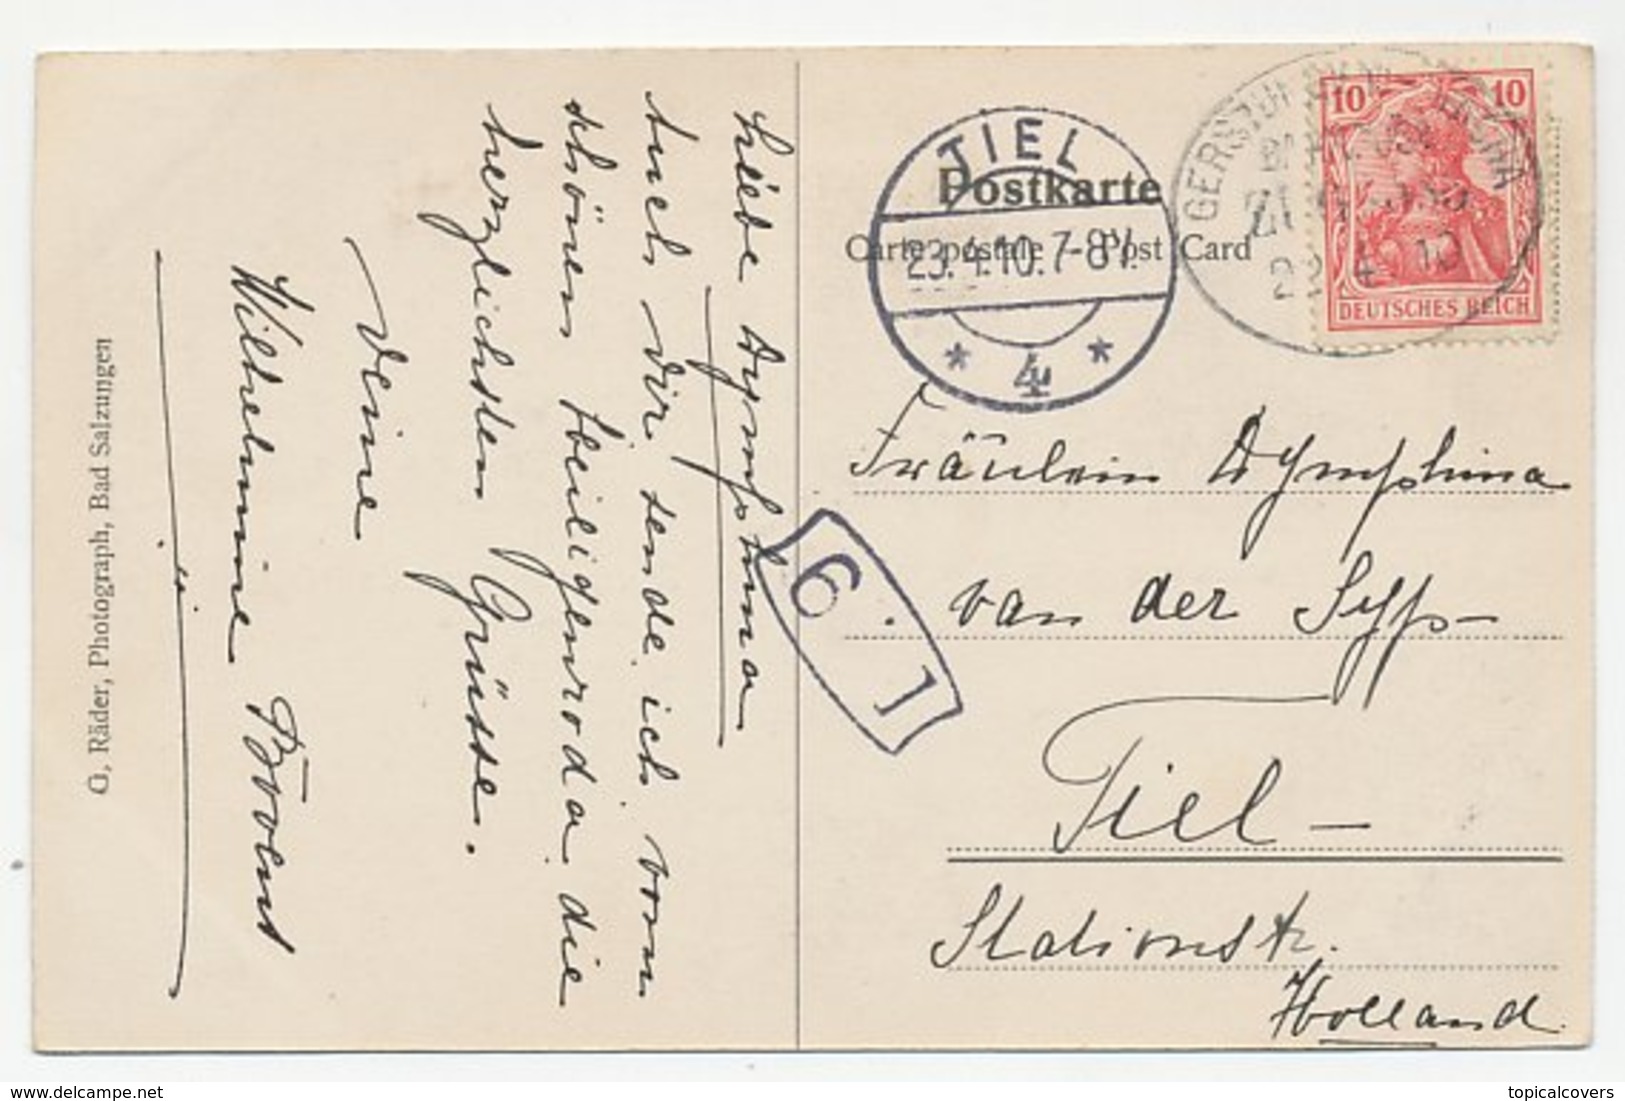 Postkarte
Carte postale – Post Card
TIEL
23.4.10.7-8V.
4
10 10
DEUTSCHES REICH
BAHNPOST
ZUG
22 4 10
Liebe Dymphina
Auch Dir sende ich vom
schönen Heiligenroda die
herzlichsten Grüsse.
Deine
Wilhelmine
Fräulein Dymphina
van der
Tiel –
Stationstr.
Holland.
61
O. Räder, Photograph, Bad Salzungen
delcampe.net
topicalcovers